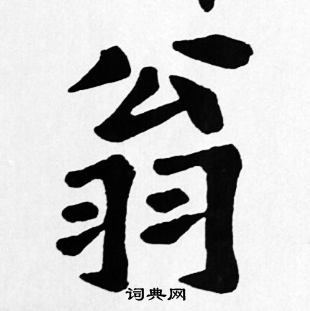 翁
词典网